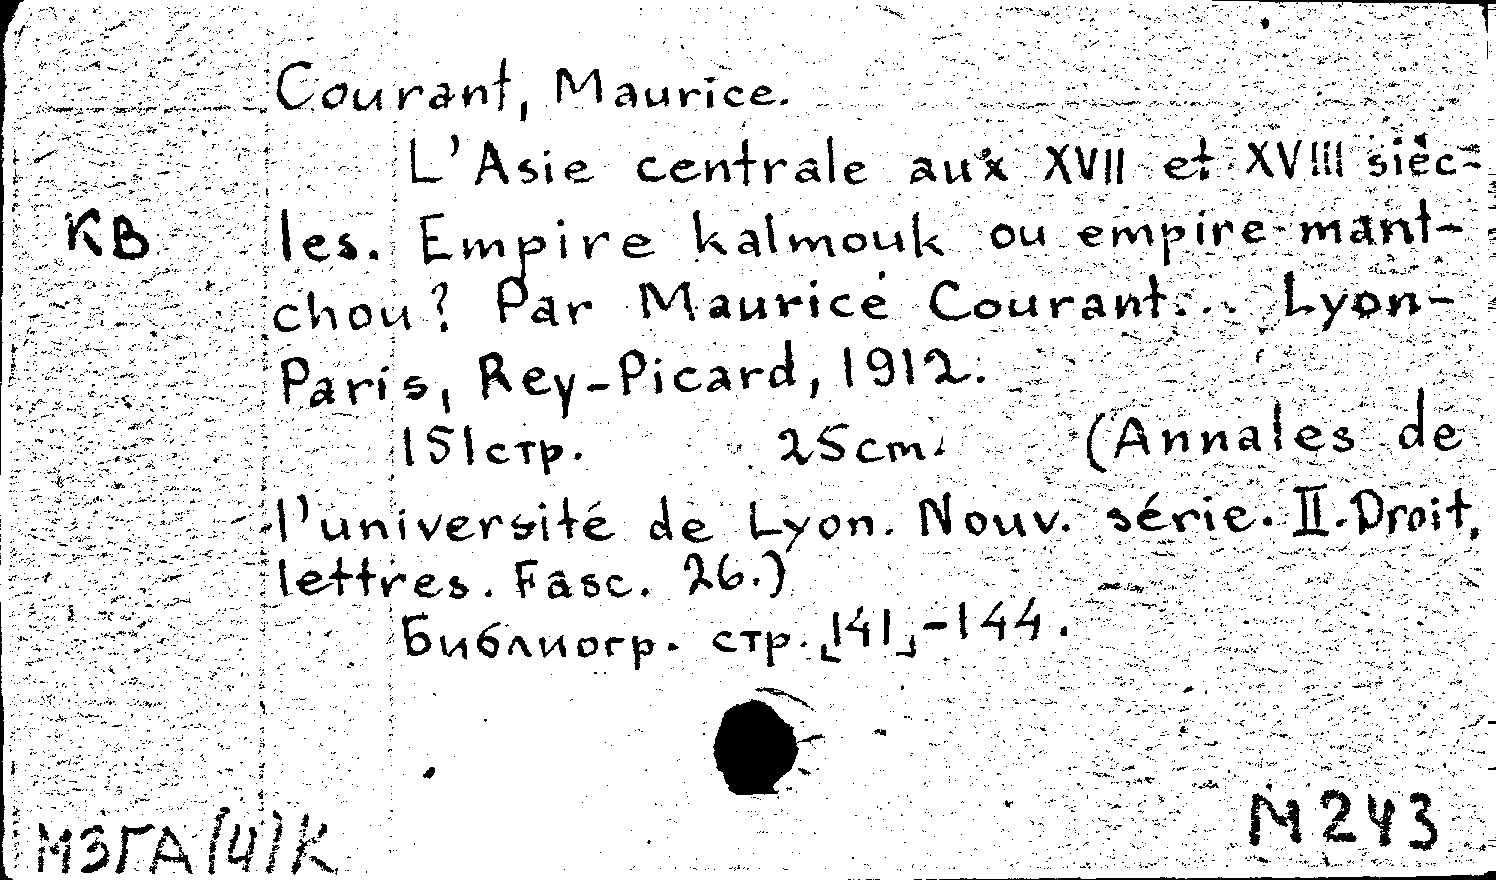 Courant, Maurice.
L'Asie centrale aux XVII et XVIII sièc-
КВ
les. Empire kalmouk ou empire mant-
chou? Par Maurice Courant... Lyon-
Paris, Rey-Picard, 1912.
151стр. 25cm. (Annales de
l'université de Lyon. Nouv. série. II. Droit,
lettres. Fasc. 26.)
Библиогр. стр. [141]-144.
М3ГА(4)К
М243